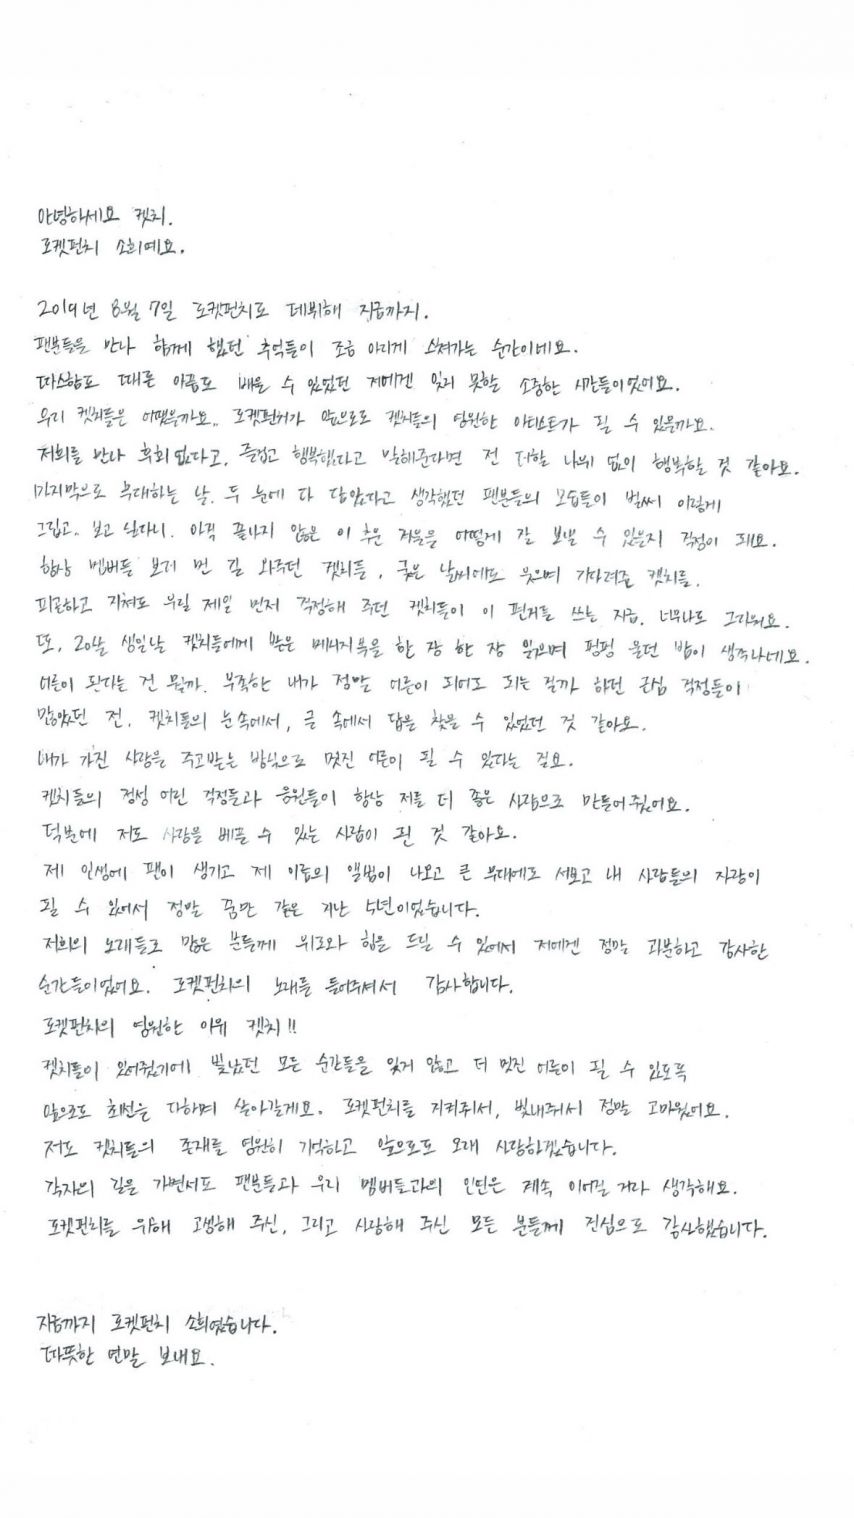 안녕하세요 켓치.
로켓펀치 소희예요.
2019년 8월 7일 로켓펀치로 데뷔해 지금까지.
팬분들을 만나 함께 했던 추억들이 조금 아리게 스쳐가는 순간이네요.
따스함도 때론 아픔도 배울 수 있었던 저에겐 잊지 못할 소중한 시간들이었어요.
우리 켓치들은 어땠을까요.. 로켓펀치가 앞으로도 켓치들의 영원한 아티스트가 될 수 있을까요.
저희를 만나 후회 없다고, 즐겁고 행복했다고 말해준다면 전 더할 나위 없이 행복할 것 같아요.
마지막으로 무대하는 날. 두 눈에 다 담았다고 생각했던 팬분들의 모습들이 벌써 이렇게
그립고.. 보고 싶다니. 아직 끝나지 않은 이 추운 겨울을 어떻게 잘 보낼 수 있을지 걱정이 돼요.
항상 멤버들 보러 먼 길 와주던 켓치들, 궂은 날씨에도 웃으며 기다려준 켓치들.
피곤하고 지쳐도 우릴 제일 먼저 걱정해 주던 켓치들이 이 편지를 쓰는 지금. 너무나도 그리워요.
또, 20살 생일날 켓치들에게 받은 메시지북을 한 장 한 장 읽으며 펑펑 울던 밤이 생각나네요.
어른이 된다는 건 뭘까. 부족한 내가 정말 어른이 되어도 되는 걸까 하던 근심 걱정들이
많았던 전. 켓치들의 눈 속에서, 글 속에서 답을 찾을 수 있었던 것 같아요.
내가 가진 사랑을 주고받는 방식으로 멋진 어른이 될 수 있다는 걸요.
켓치들의 정성 어린 걱정들과 응원들이 항상 저를 더 좋은 사람으로 만들어 줬어요.
덕분에 저도 사랑을 베풀 수 있는 사람이 된 것 같아요.
제 인생에 팬이 생기고 제 이름의 앨범이 나오고 큰 무대에도 서보고 내 사람들의 자랑이
될 수 있어서 정말 꿈만 같은 지난 5년이었습니다.
저희의 노래들로 많은 분들께 위로와 힘을 드릴 수 있어서 저에겐 정말 과분하고 감사한
순간들이었어요. 로켓펀치의 노래를 들어주셔서 감사합니다.
로켓펀치의 영원한 이유 켓치!!
켓치들이 있어줬기에 빛났던 모든 순간들을 잊지 않고 더 멋진 어른이 될 수 있도록
앞으로도 최선을 다하며 살아갈게요. 로켓펀치를 지켜줘서, 빛내줘서 정말 고마웠어요.
저도 켓치들의 존재를 영원히 기억하고 앞으로도 오래 사랑하겠습니다.
각자의 길을 가면서도 팬분들과 우리 멤버들과의 인연은 계속 이어질 거라 생각해요.
로켓펀치를 위해 고생해 주신, 그리고 사랑해 주신 모든 분들께 진심으로 감사했습니다.
지금까지 로켓펀치 소희였습니다.
따뜻한 연말 보내요.